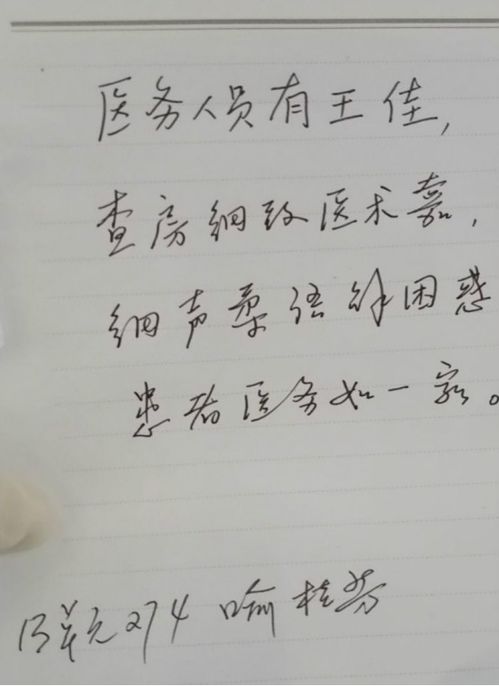 医务人员有王佳,
查房细致医术嘉,
细声柔语解困惑
患者医务如一家。
13单元274 喻桂芬